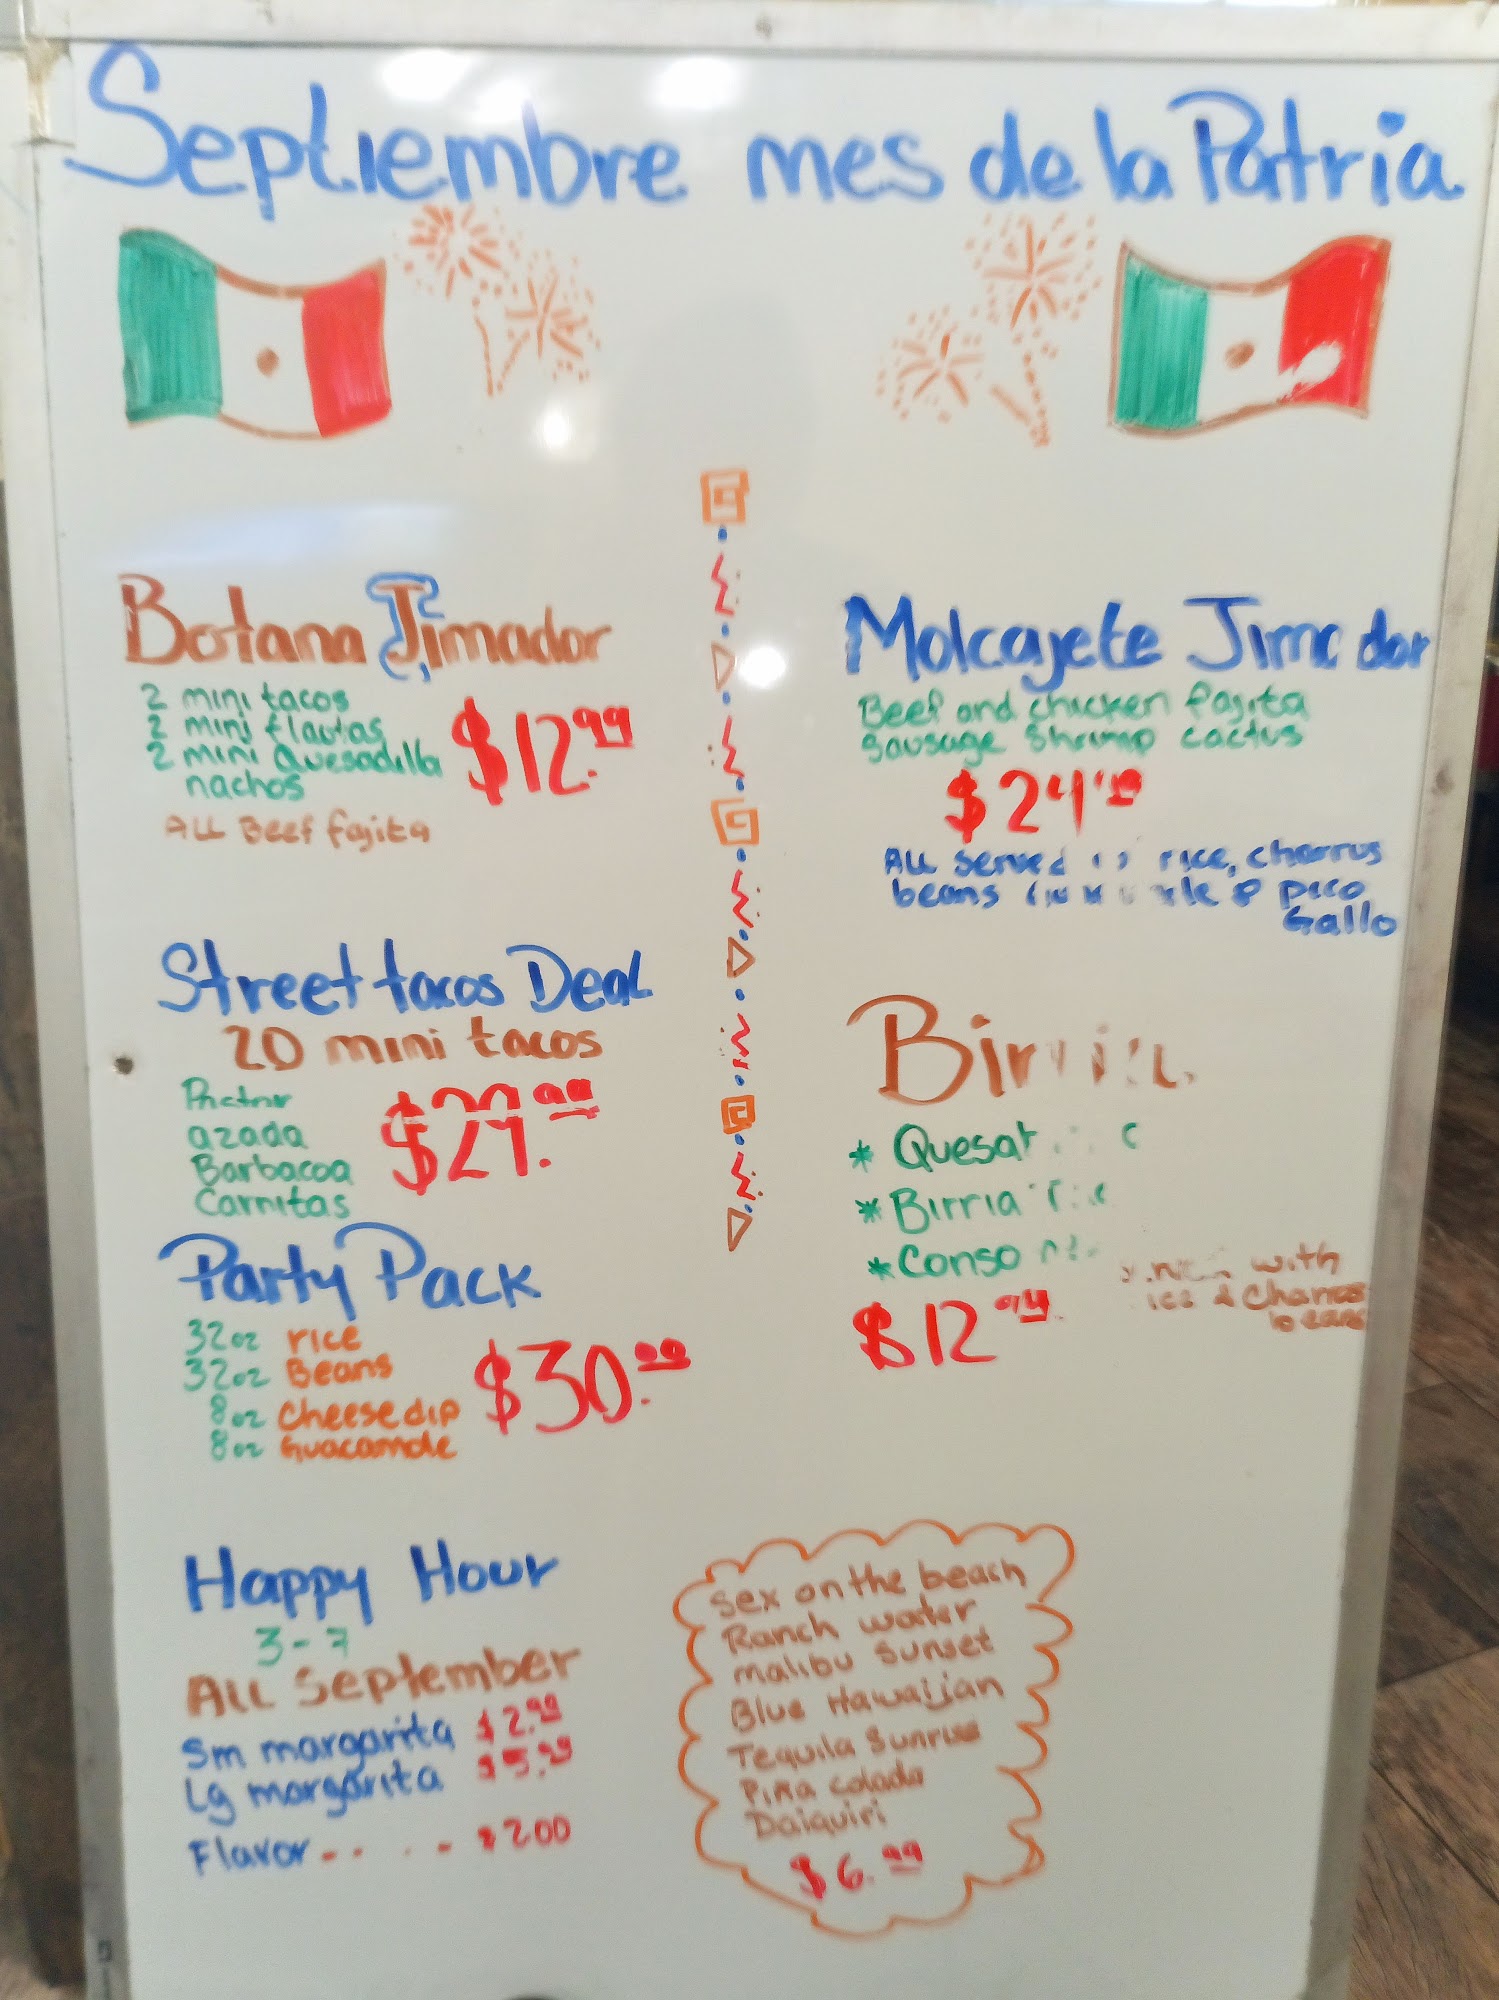 Septiembre mes de la Patria
Botana Jimador
2 mini tacos
2 mini flautas
2 mini Quesadilla
nachos
$12.99
ALL Beef fajita
Street tacos Deal
20 mini tacos
azada
Barbacoa
Carnitas
Party Pack
32oz rice
32oz Beans
8oz Cheese dip
8oz Guacamole
$30.99
Molcajete Jimador
Beef and chicken fajita
Sausage Shrimp cactus
ALL served rice, charrus
beans & pico
Gallo
Birria
* Quesa
* Birria
* Conso
$12
with
& Charros
beans
Happy Hour
3-7
ALL September
Sm margarita $2.99
Lg margarita $5.99
Flavor $2.00
Sex on the beach
Ranch water
malibu sunset
Blue Hawaiian
Tequila Sunrise
Piña colada
Daiquiri
$6.99